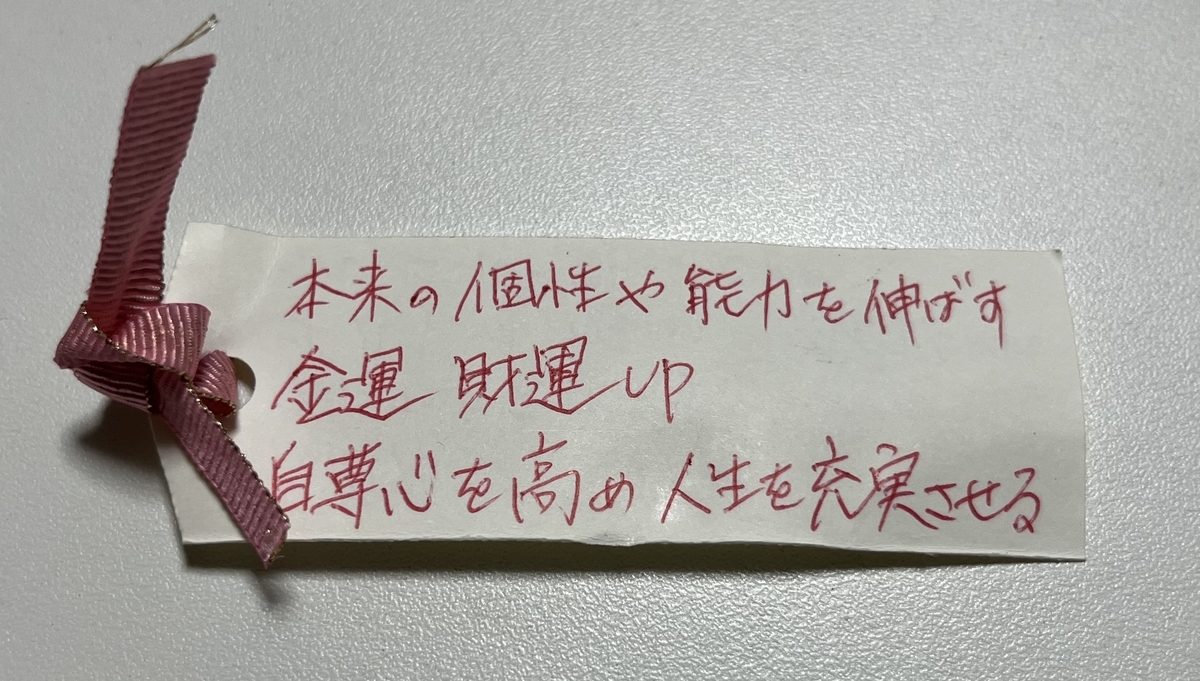 本来の個性や能力を伸ばす
金運 財運 UP
自尊心を高め人生を充実させる